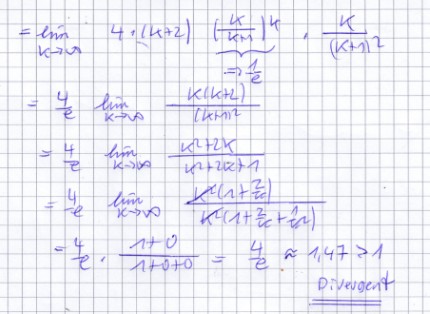 = lim k→∞ 4 · (k+2) (k/(k+1))^k · k/(k+1)²
⇒ 1/e
= 4/e lim k→∞ k(k+2)/(k+1)²
= 4/e lim k→∞ (k²+2k)/(k²+2k+1)
= 4/e lim k→∞ k²(1+2/k)/k²(1+2/k+1/k²)
= 4/e · (1+0)/(1+0+0) = 4/e ≈ 1,47 > 1
Divergent